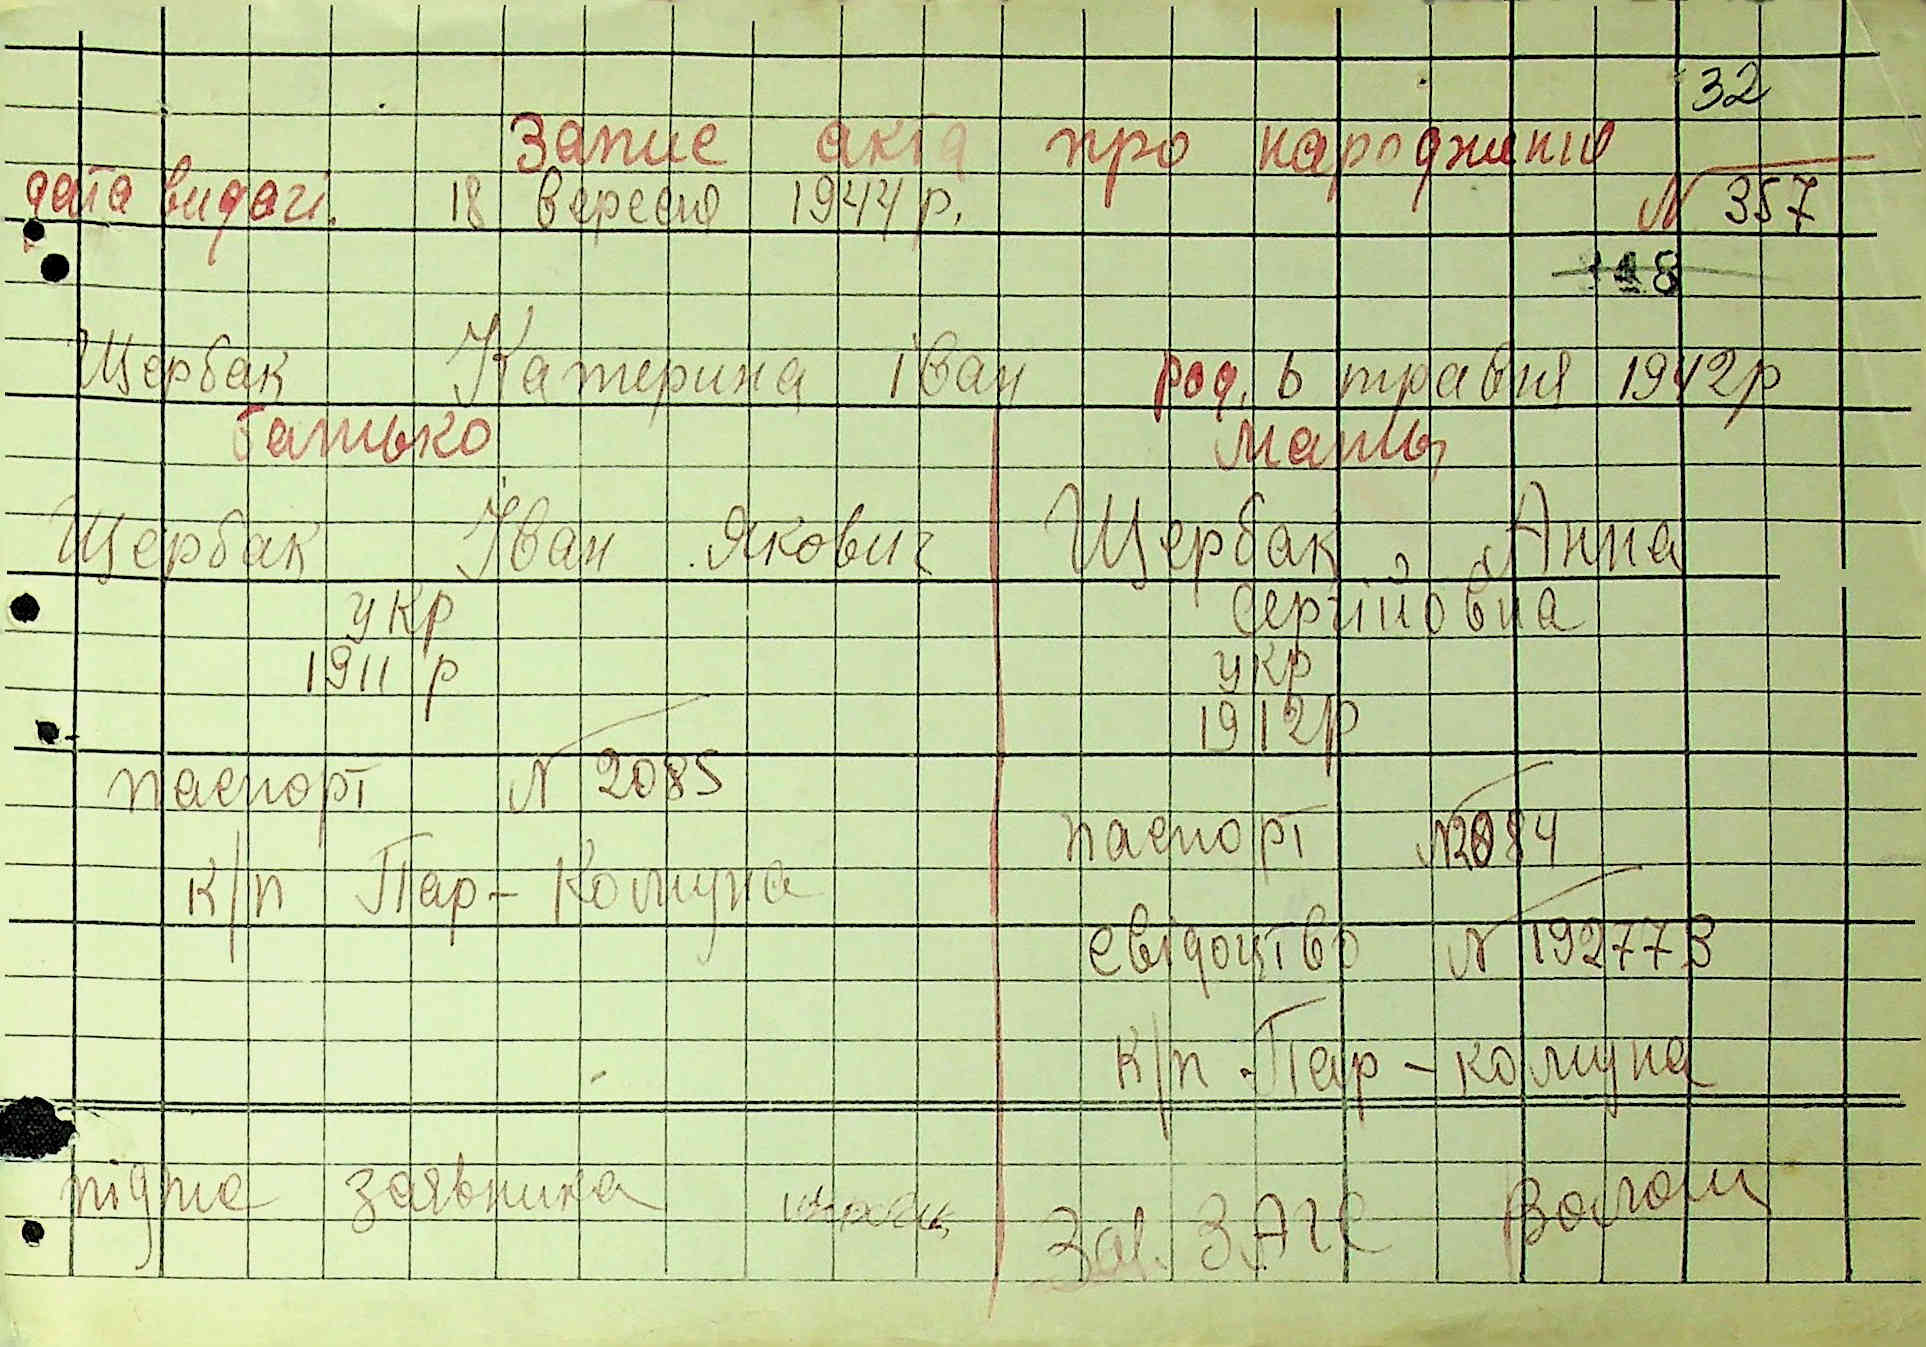 32
Запис акта про народження
дата видачі. 18 вересня 1944 р. N 357
118
Щербак Катерина Іван род. 6 травня 1942р
батько мать
Щербак Іван Якович Щербак Анна
Сергійовна
укр
1911 р
укр
1912р
паспорт N 2085
паспорт N 2084
к/п Пар-Комуна
свідоцтво N 192773
к/п Пар-комуна
підпис заявника Щербак Зав. ЗАГС